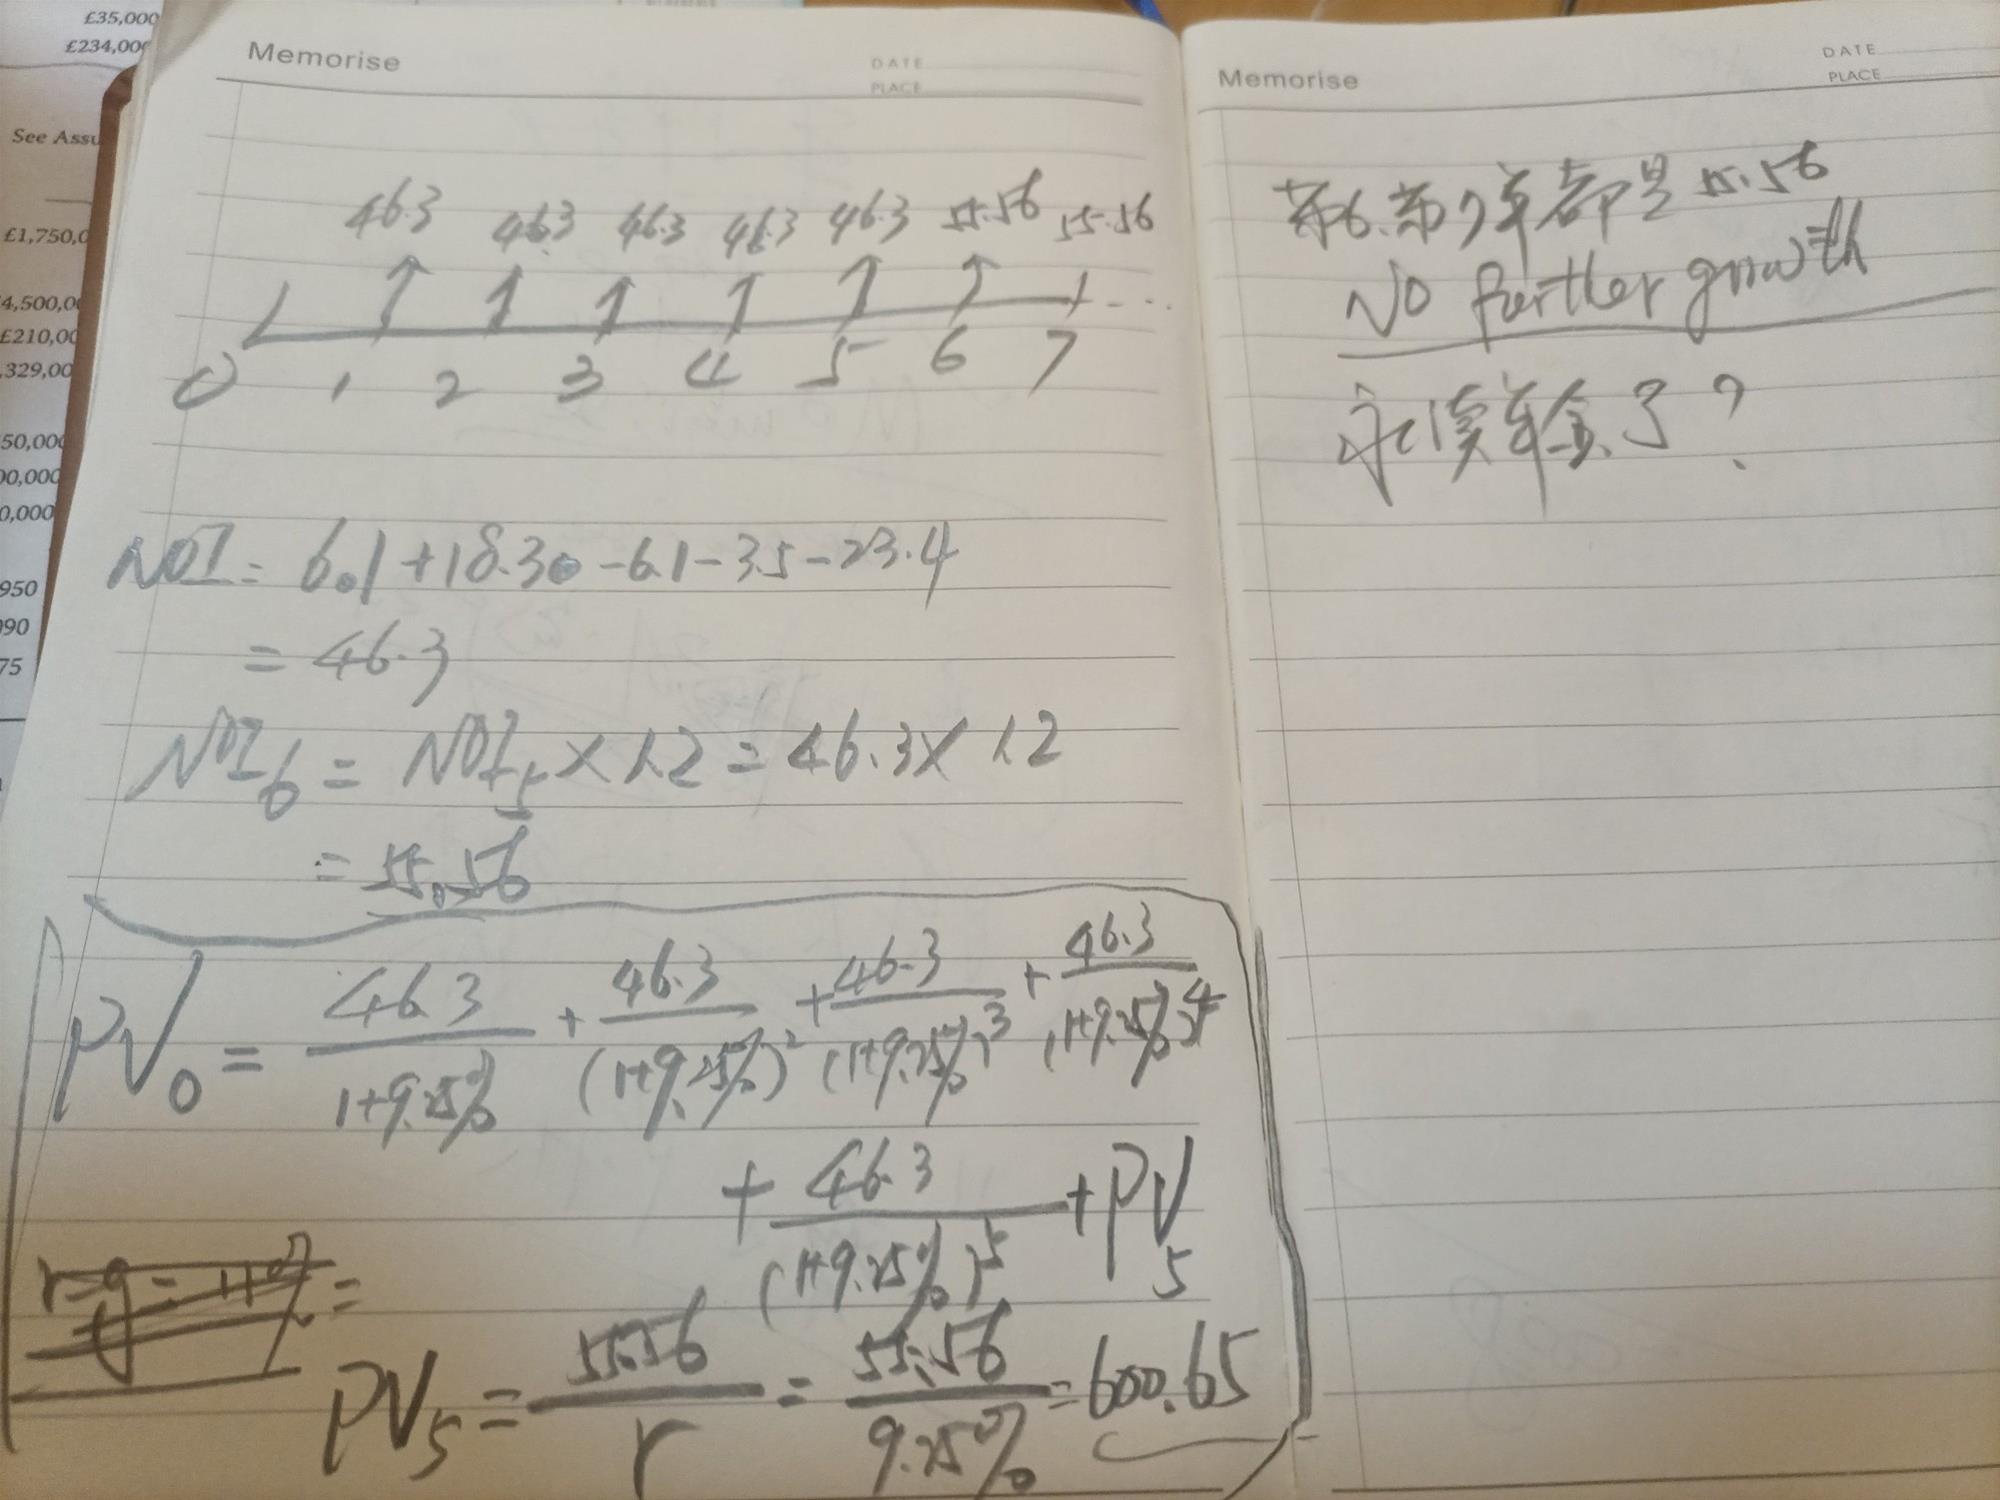 £35,000
£234,00
See Assu
£1,750,0
4,500,0
£210,00
,329,00
50,000
00,000
0,000
950
090
75
Memorise
DATE
PLACE
46.3 46.3 46.3 46.3 46.3 55.56 55.56
0 1 2 3 4 5 6 7 ...
NOI = 6.1 + 18.30 - 6.1 - 35 - 23.4
= 46.3
NOI6 = NOI5 × 1.2 = 46.3 × 1.2
= 55.56
PV0 = 46.3/(1+9.25%) + 46.3/(1+9.25%)^2 + 46.3/(1+9.25%)^3 + 46.3/(1+9.25%)^4
+ 46.3/(1+9.25%)^5 + PV5
PV5 = 55.56/r = 55.56/9.25% = 600.65
Memorise
DATE
PLACE
第6.第7年都是 55.56
No further growth
永续年金了?